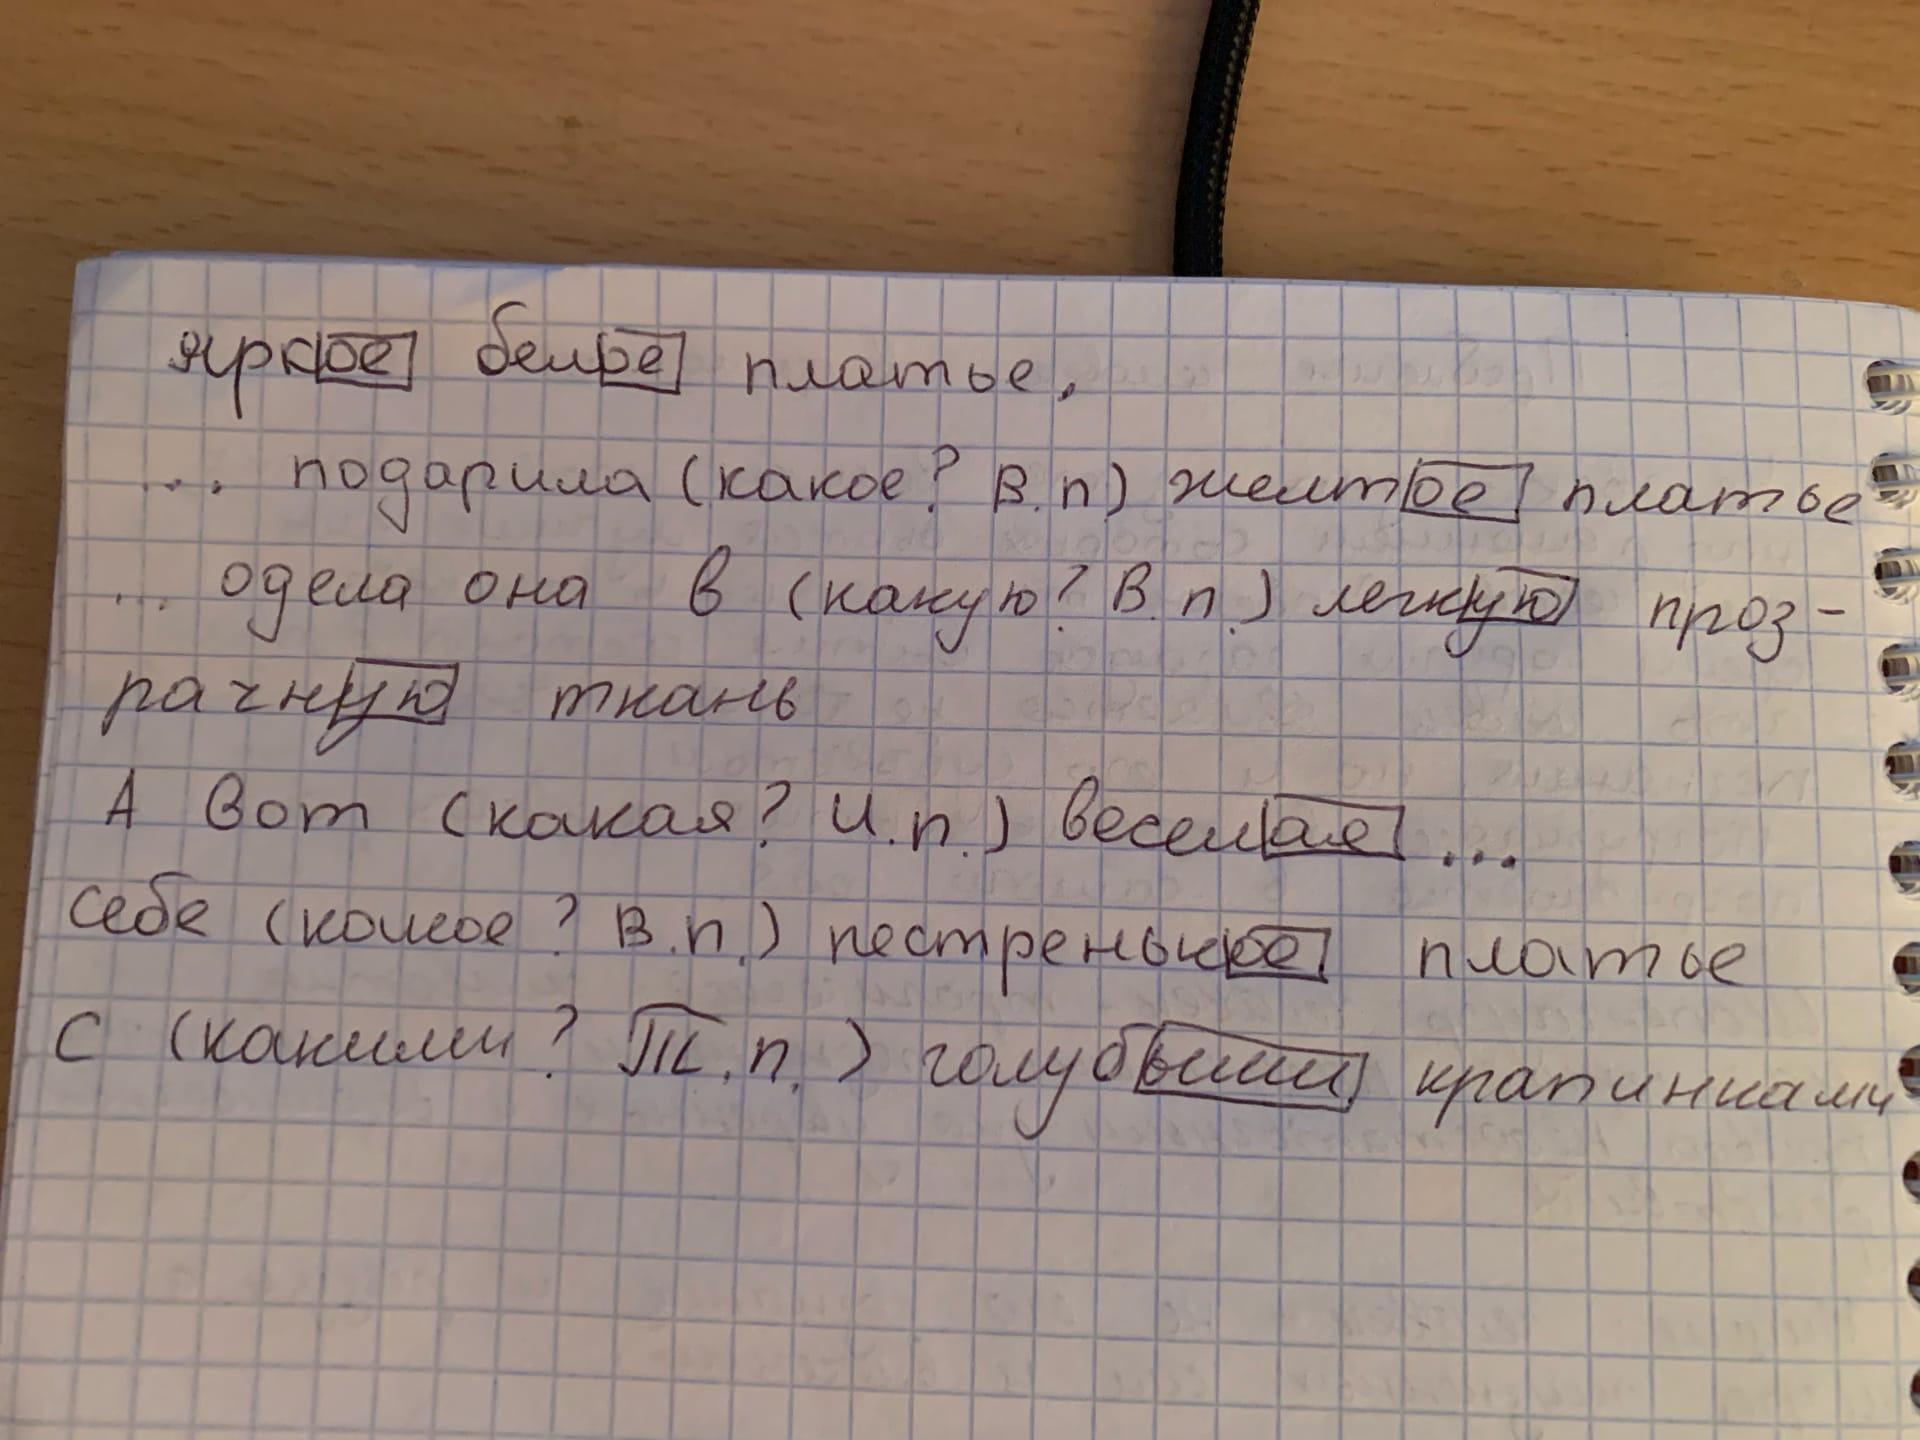 яркое белое платье,
... подарила (какое? В.п) желтое платье
... одела она в (какую? В.п.) легкую проз-
рачную ткань
А вот (какая? И.п.) веселая ...
себе (какое? В.п.) пестренькое платье
с (какими? Т.п.) голубыми крапинками